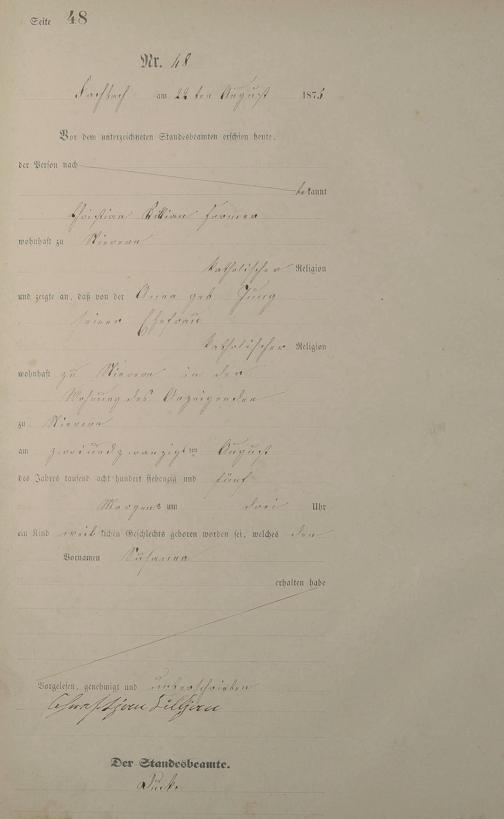 Seite 48
Nr. 48
Fachbach am 22 ten August 1875
Vor dem unterzeichneten Standesbeamten erschien heute,
der Person nach
bekannt
Christian
wohnhaft zu Nievern
katholischer Religion
und zeigte an, daß von der Anna geb Jung
seiner Ehefrau
katholischer Religion
wohnhaft zu Nievern in der
Wohnung des Anzeigenden
zu Nievern
am zweiundzwanzigsten August
des Jahres tausend acht hundert siebenzig und fünf
Morgens um drei Uhr
ein Kind weiblichen Geschlechts geboren worden sei, welches den
Vornamen Susanna
erhalten habe
Vorgelesen, genehmigt und unterschrieben
Der Standesbeamte.